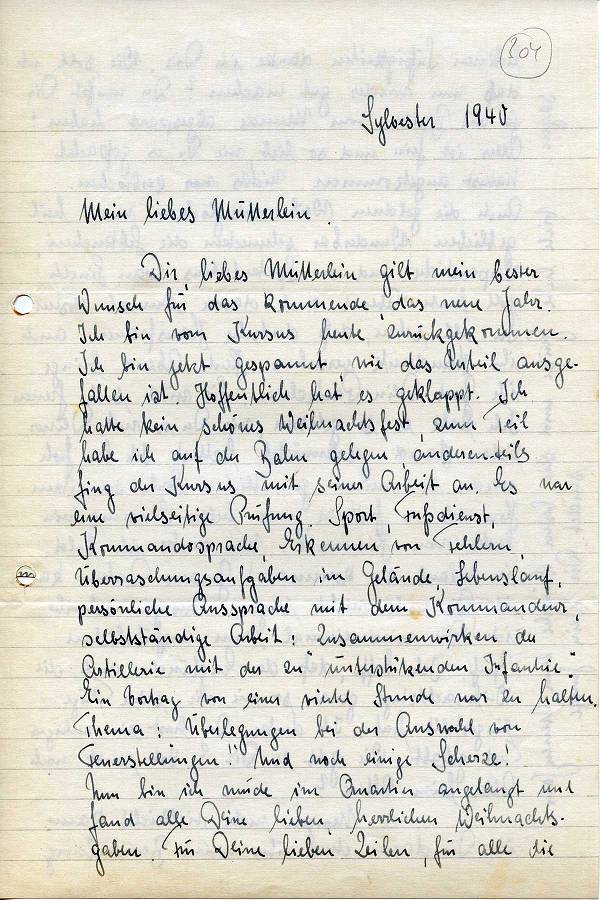 304
Sylvester 1940
Mein liebes Mütterlein.
Dir, liebes Mütterlein, gilt mein bester
Wunsch für das kommende, das neue Jahr.
Ich bin vom Kursus heute zurückgekommen.
Ich bin jetzt gespannt, wie das Urteil ausge-
fallen ist. Hoffentlich hat es geklappt. Ich
hatte kein schönes Weihnachtsfest, zum Teil
habe ich auf der Bahn gelegen, anderenteils
fing der Kursus mit seiner Arbeit an. Es war
eine vielseitige Prüfung. Sport, Fußdienst,
Kommandosprache, Erkennen von Fehlern,
Überraschungsaufgaben im Gelände, Lebenslauf,
persönliche Aussprache mit dem Kommandeur,
selbstständige Arbeit: Zusammenwirken der
Artillerie mit der zu "unterstützenden Infantrie".
Ein Vortrag von einer viertel Stunde war zu halten.
Thema: Überlegungen bei der Auswahl von
Feuerstellungen!" Und noch einige Scherze!
Nun bin ich müde im Quartier angelangt und
fand alle Deine lieben, herrlichen Weihnachts-
gaben. Für Deine lieben Zeilen, für alle die